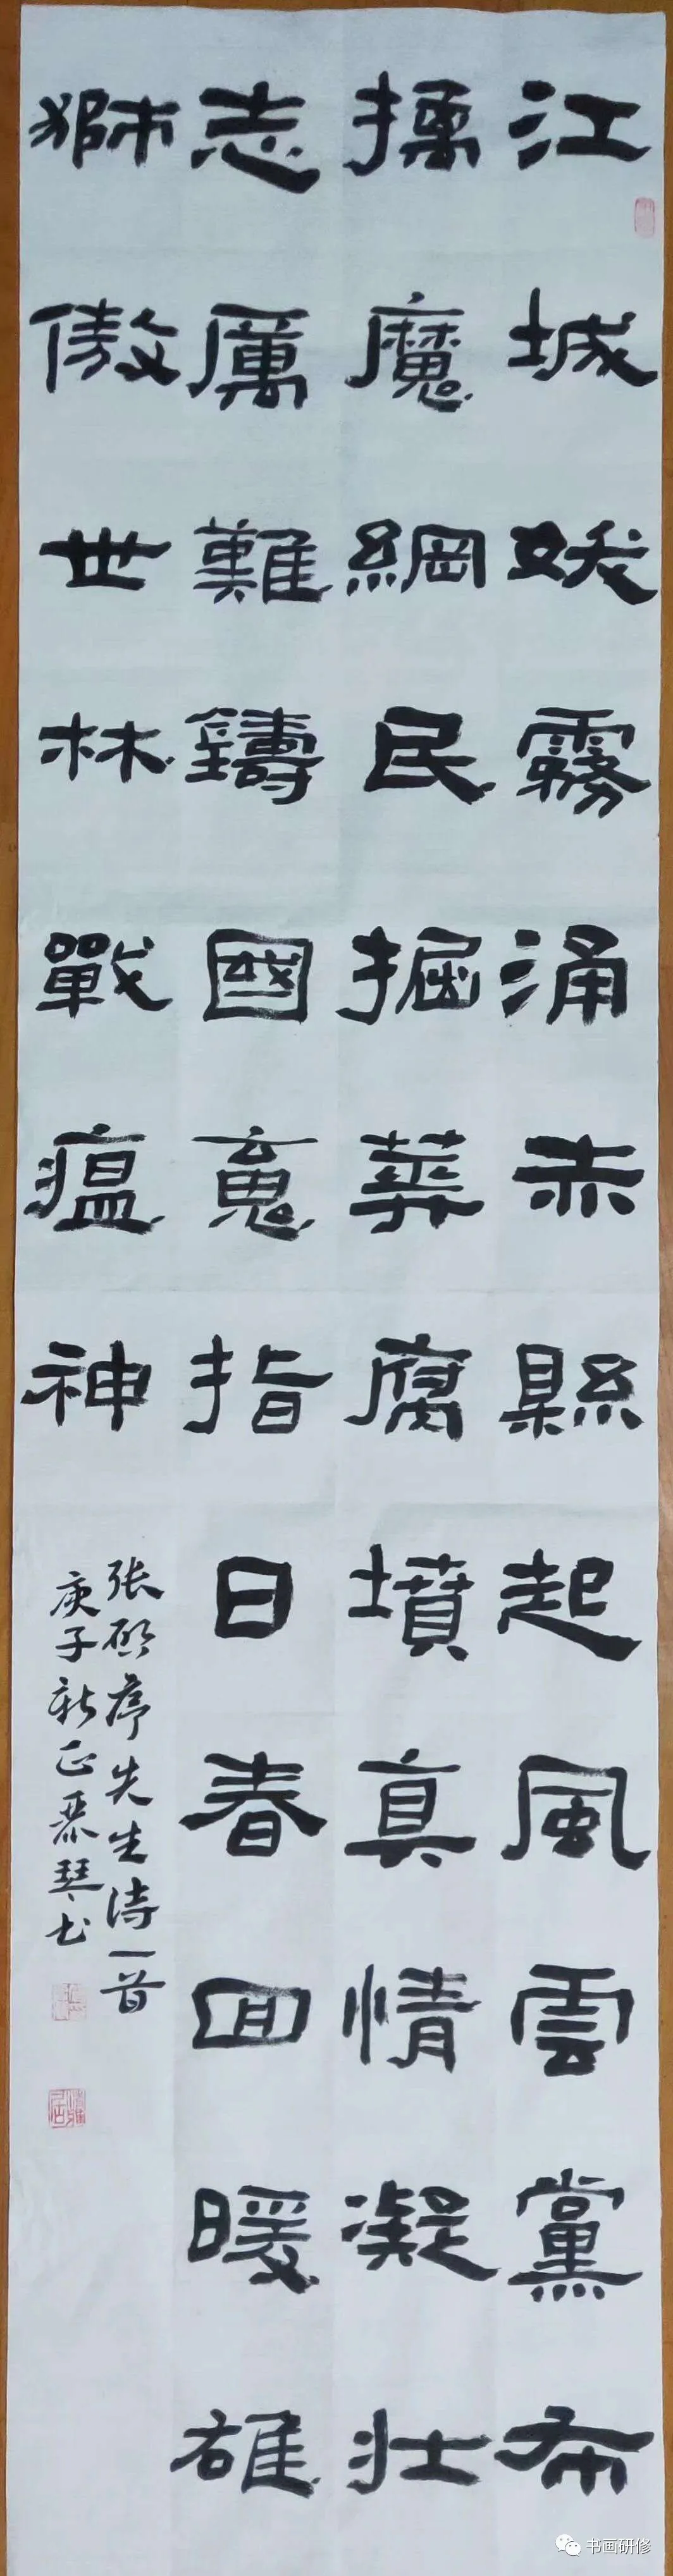 江城妖霧涌赤縣起風雲黨布
擒魔綱民掘葬腐墳真情凝壮
志厲難鑄國魂指日春回暖雄
獅傲世林戰瘟神
张 序先生诗一首
庚子新正慕琴书
书画研修